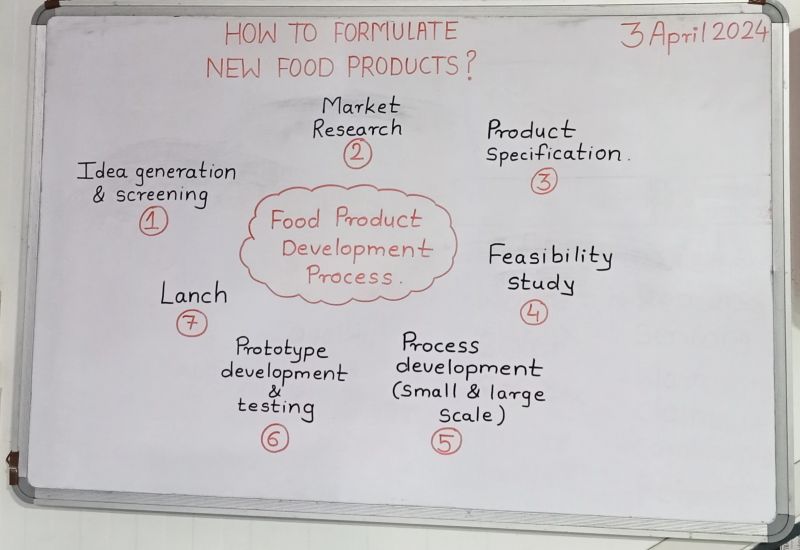 HOW TO FORMULATE
NEW FOOD PRODUCTS?
3 April 2024
Idea generation
& screening
1
Market
Research
2
Product
Specification.
3
Feasibility
study
4
Process
development
(Small & large
scale)
5
Prototype
development
&
testing
6
Lanch
7
Food Product
Development
Process.